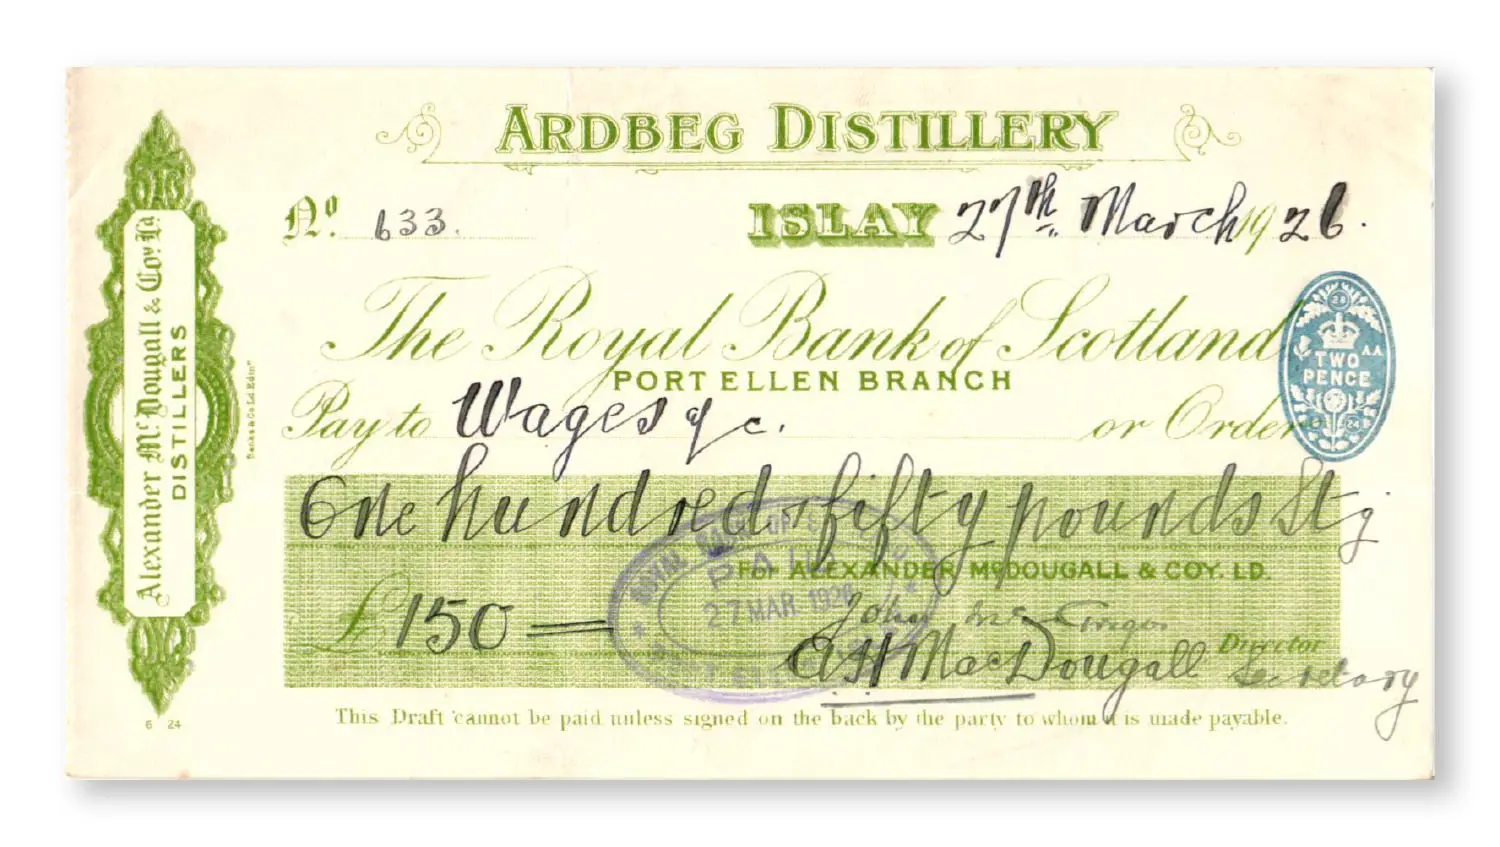 ARDBEG DISTILLERY
No. 633.
ISLAY 27th March 1926.
The Royal Bank of Scotland
PORT ELLEN BRANCH
Pay to Wages &c. or Order
One hundred & fifty pounds Stg
FOR ALEXANDER McDOUGALL & COY. LD.
£150
John
A H MacDougall Director
Secretary
This Draft cannot be paid unless signed on the back by the party to whom it is made payable.
Alexander McDougall & Coy. Ld.
DISTILLERS
Banks & Co Ld Edinr
6 24
TWO PENCE
A.A
28
24
ROYAL BANK OF
PAID
27 MAR. 1926
PORT